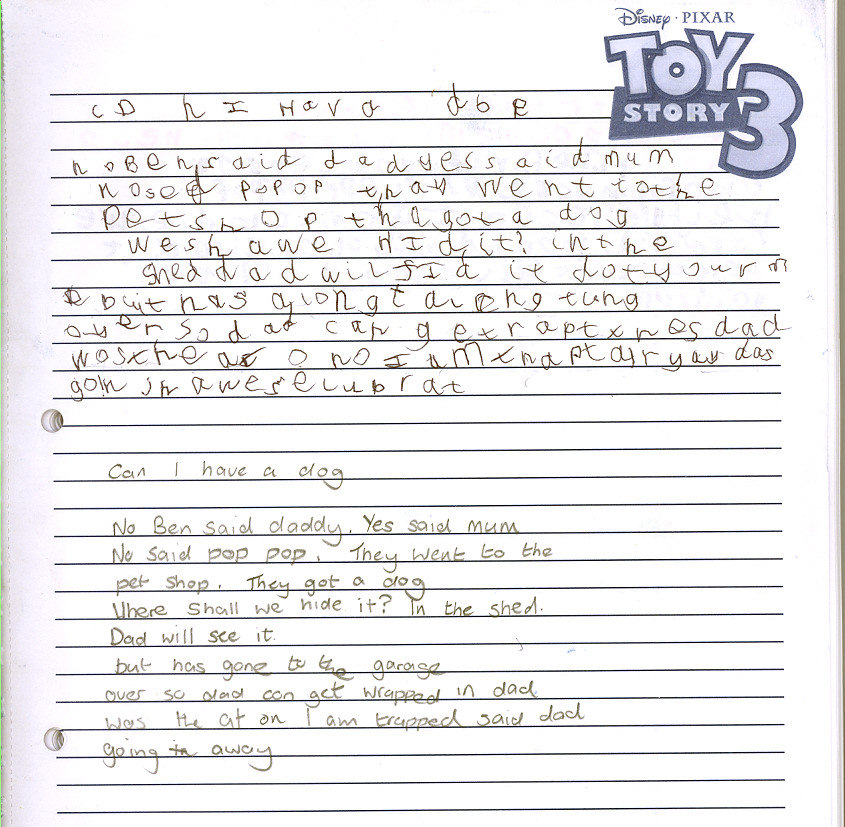 DISNEY · PIXAR
TOY
STORY 3
c D n I Hava dog
no Ben said dadyes said mum
nosed popop thay went tothe
petshop thagota dog
weshawe hIdit? inthe
shed dadwil fId it
buit has
over so dad can getrapt
washe o no I am trapt
goin
Can I have a dog
No Ben said daddy. Yes said mum
No said pop pop. They went to the
pet shop. They got a dog
Where shall we hide it? In the shed.
Dad will see it.
but has gone to the garage
over so dad can get wrapped in dad
was the at on I am trapped said dad
going in away